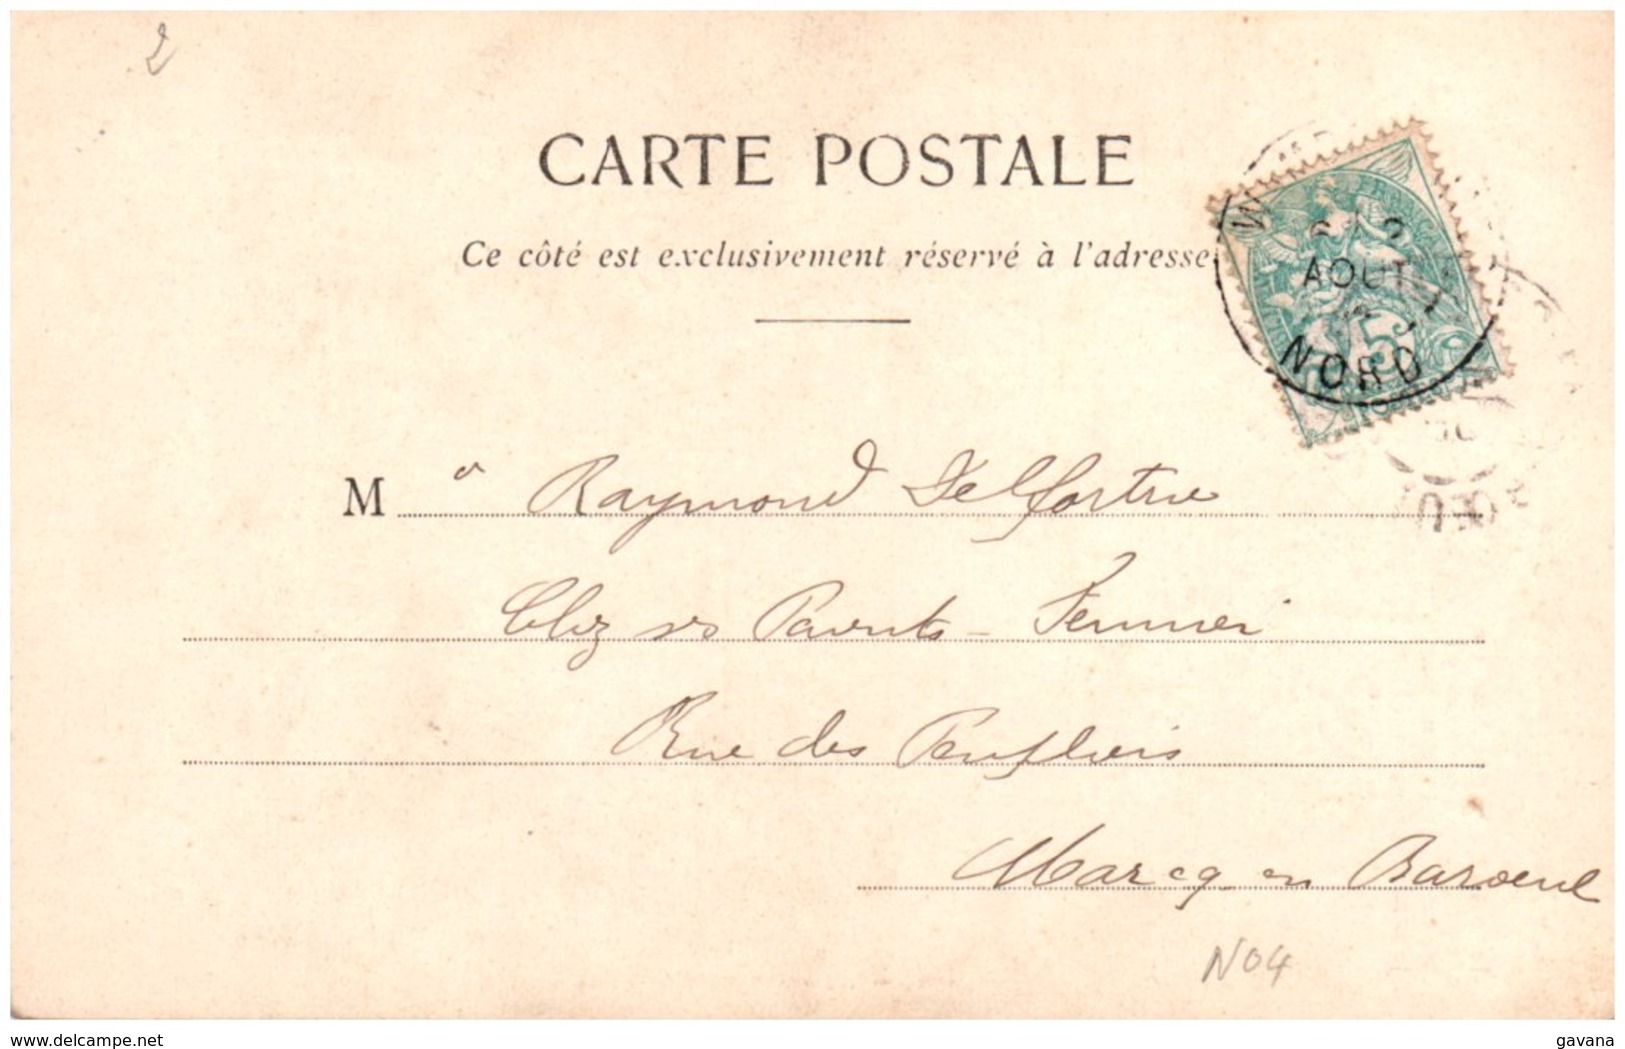 2
CARTE POSTALE
Ce côté est exclusivement réservé à l'adresse
AOUT
5
NORD
M a Raymond Delfortrie
Chez ses Parents - Fermier
Rue des Peupliers
Marcq en Baroeul
N04
www.delcampe.net
gavana